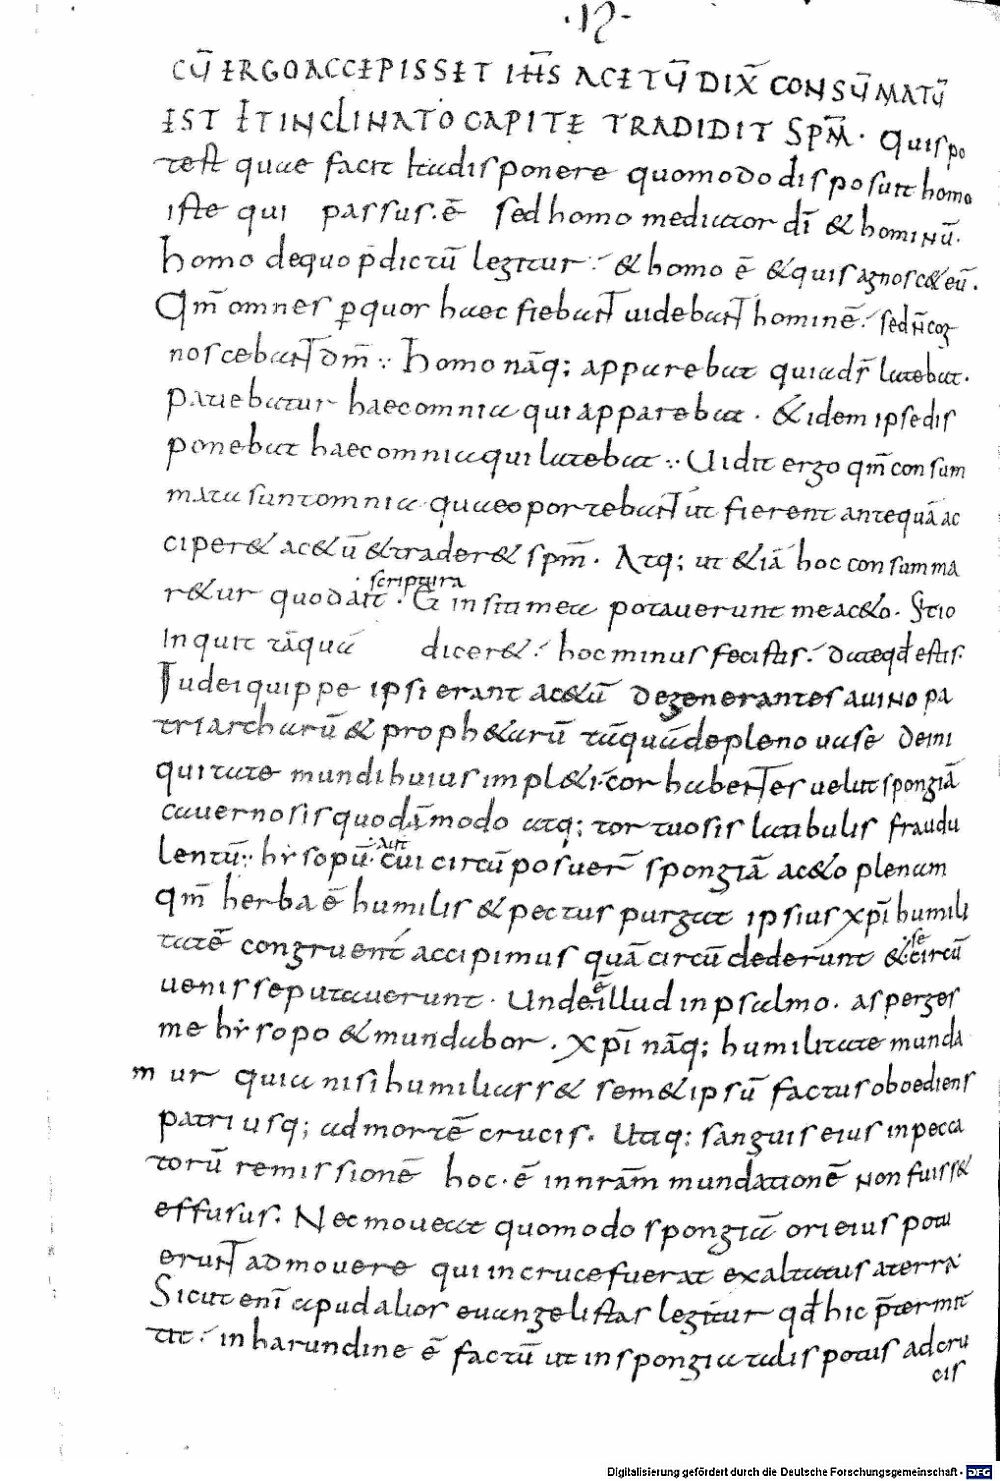 ·12·
CŪ ERGO ACCEPISSET IHS̄ ACETŪ DIX̄ CONSŪMATŪ
EST ET INCLINATO CAPITE TRADIDIT SPM̄· Quis po
test quae facit ita disponere quomodo disposuit homo
iste qui passus·ē sed homo mediator dī & hominū·
homo de quo p̄dictū legitur & homo ē & quis agnosc& eū·
Qm̄ omnes ꝑ quor haec fiebant uidebant hominē sed n̄ cog
noscebant dm̄ Homo nāq; apparebat qui ad r̄ latebat·
Patiebatur haec omnia qui apparebat· & idem ipse dis
ponebat haec omnia qui latebat Uidit ergo qm̄ consum
mata sunt omnia quae oportebant ut fierent antequā ac
ciper& ac&ū & trader& spm̄· Atq; ut &iā hoc consumma
r&ur quod ait
scriptura
· Et in siti mea potauerunt me ac&o· Sitio
Inquit tāquā dicer& hoc minus fecistis date qd̄ estis·
Iudei quippe ipsi erant ac&ū degenerantes a uino pa
triarcharū & proph&arū tāquā de pleno uase de ini
quitate mundi huius impl&i· cor habentes uelut spongiā
cauernosis quodāmodo atq; tortuosis latibulis fraudu
lentū hysopū·
·aut
cui circū posuer̄ spongiā ac&o plenam
qm̄ herba ē humilis & pectus purgat ipsius xp̄i humili
tatē congruent́ accipimus quā circū dederunt &
·se
circū
uenisse putauerunt· Unde
ē
illud in psalmo· asperges
me hysopo & mundabor· Xp̄i nāq; humilitate munda
mur quia nisi humiliass& sem&ipsū factus oboediens
patri usq; ad mortē crucis· Utiq: sanguis eius in pecca
torū remissionē hoc·ē in nrām mundationē non fuiss&
effusus· Nec moueat quomodo spongiā ori eius potu
erunt admouere qui in cruce fuerat exaltatus a terra·
Sicut enī apud alios euangelistas legitur qd̄ hic p̄termit
tit in harundine ē factū ut in spongia talis potus ad cru
cis
Digitalisierung gefördert durch die Deutsche Forschungsgemeinschaft - DFG